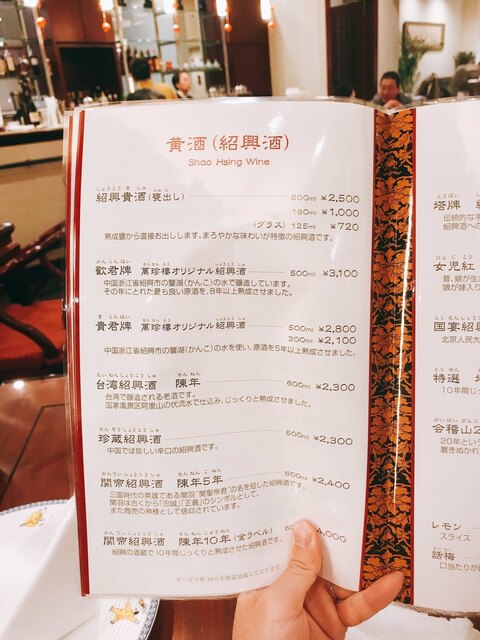 黄酒（紹興酒）
Shao Hsing Wine
紹興貴酒（甕出し） 500ml ¥2,500
180ml ¥1,000
（グラス）125ml ¥720
熟成甕から直接お出しします。まろやかな味わいが特徴の紹興酒です。
歡君牌 萬珍樓オリジナル紹興酒 500ml ¥3,100
中国浙江省紹興市の鑒湖（かんこ）の水で醸造しています。
その年にとれた最も良い原酒を、8年以上熟成させました。
貴君牌 萬珍樓オリジナル紹興酒 500ml ¥2,800
300ml ¥2,100
中国浙江省紹興市の鑒湖（かんこ）の水を使い、原酒を5年以上熟成させました。
台湾紹興酒 陳年 600ml ¥2,300
台湾で醸造される老酒です。
国家風景区阿里山の伏流水で仕込み、じっくりと熟成させました。
珍蔵紹興酒 500ml ¥2,300
中国では珍しい辛口の紹興酒です。
関帝紹興酒 陳年5年 600ml ¥2,400
三国時代の英雄である関羽"関聖帝君"の名を冠した紹興酒です。
関羽は古くから「忠誠」「正義」のシンボルとして、
また商売の神様として信仰されています。
関帝紹興酒 陳年10年（金ラベル） ,000
紹興の酒蔵で10年間じっくりと熟成させた紹興酒です。
サービス料10%を別途頂戴しております。
塔牌
伝統的な手
紹興酒への
女児紅
昔、娘が生
娘が嫁入り
国宴紹興
北京人民大
特選
10年間じっ
会稽山2
20年という
磨きぬかれ
レモン
スライス
話梅
口当たりが